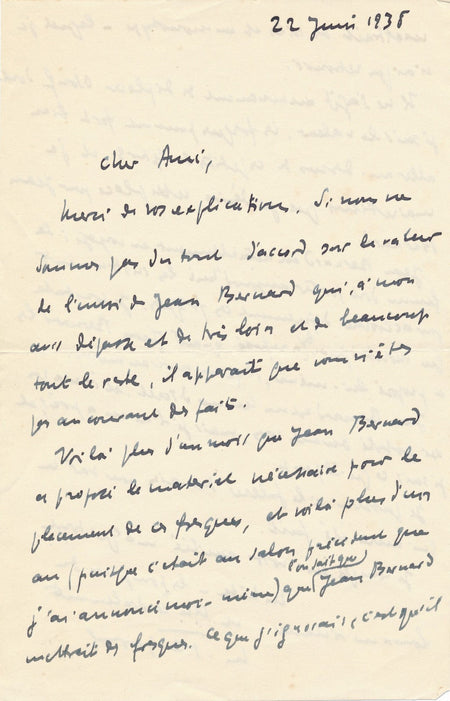 22 Juin 1938
Cher Ami,
Merci de vos explications. Si nous ne
sommes pas du tout d'accord sur la valeur
de l'envoi de Jean Bernard qui, à mon
avis dépasse et de très loin et de beaucoup
tout le reste, il apparaît que vous n'êtes
pas au courant des faits.
Voilà plus d'un mois que Jean Bernard
a proposé le matériel nécessaire pour le
placement de ces fresques, et voilà plus d'un
an (puisque c'était au salon précédent que
j'ai annoncé moi-même) que l'on sait que Jean Bernard
mettrait des fresques. Ce que j'ignorais, c'est qu'il